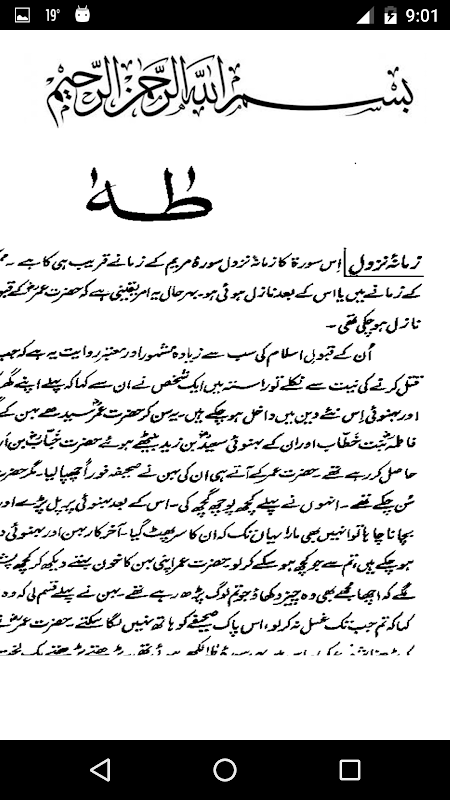 19° 9:01
بسم الله الرحمن الرحيم
طٰهٰ
زمانۂ نزول اِس سورۃ کا زمانۂ نزول سورۂ مریم کے زمانے قریب ہی کا ہے۔
کے زمانے میں یا اس کے بعد نازل ہوئی ہو۔ بہرحال یہ امر یقینی ہے کہ حضرت عمرؓ کے
نازل ہو چکی تھی۔
اُن کے قبولِ اسلام کی سب سے زیادہ مشہور اور معتبر روایت یہ ہے کہ جب
قتل کرنے کی نیت سے نکلے تو راستہ میں ایک شخص نے ان سے کہا کہ پہلے اپنے گھر
اور بہنوئی اِس نئے دین میں داخل ہو چکے ہیں۔ یہ سن کر حضرت عمرؓ سیدھے بہن کے
فاطمہؓ بنت خطّاب اور ان کے بہنوئی سعیدؓ بن زید بیٹھے ہوئے حضرت خبّابؓ بن
حاصل کر رہے تھے۔ حضرت عمر کے آتے ہی ان کی بہن نے صحیفہ فوراً چھپا لیا۔ مگر حضرت
سُن چکے تھے۔ انہوں نے پہلے کچھ پوچھ گچھ کی۔ اس کے بعد بہنوئی پر پل پڑے اور
بچانا چاہا تو انہیں بھی مارا یہاں تک کہ ان کا سر پھٹ گیا۔ آخر کار بہن اور بہنوئی
ہو چکے ہیں، تم سے جو کچھ ہو سکے کر لو۔ حضرت عمر اپنی بہن کا خون بہتے دیکھ کر کچھ
لگے کہ اچھا مجھے بھی وہ چیز دکھاؤ جو تم لوگ پڑھ رہے تھے۔ بہن نے پہلے قسم لی کہ وہ
کہا کہ تم جب تک غسل نہ کر لو، اس پاک صحیفے کو ہاتھ نہیں لگا سکتے۔ حضرت عمرؓ نے